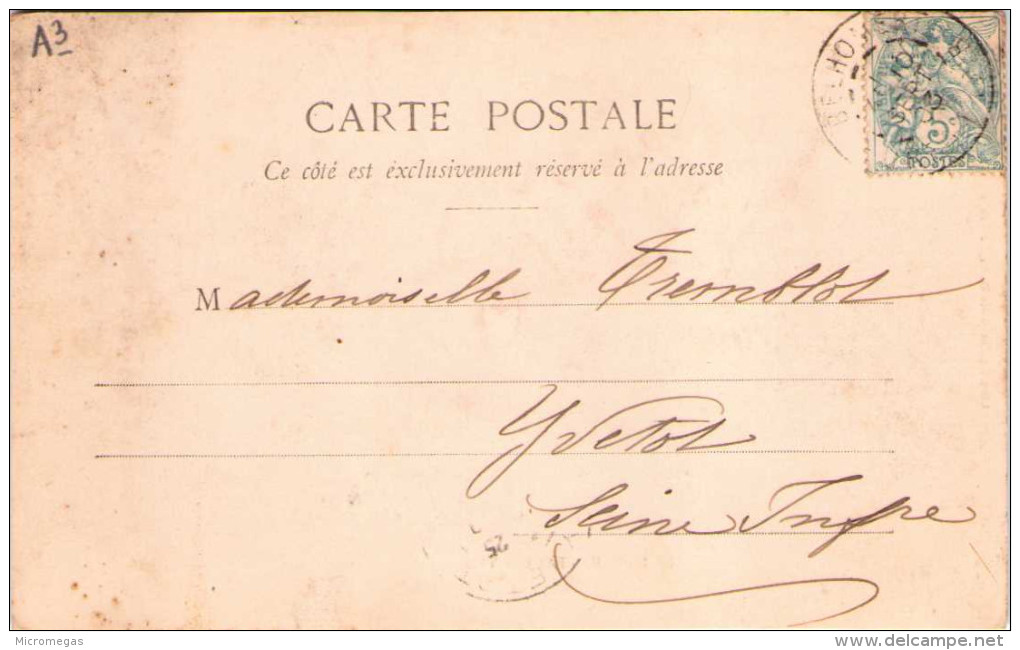 A3
BELHO
5c
POSTES
CARTE POSTALE
Ce côté est exclusivement réservé à l'adresse
Mademoiselle Tremblot
Yvetot
Seine Infre
25
Micromegas
www.delcampe.net